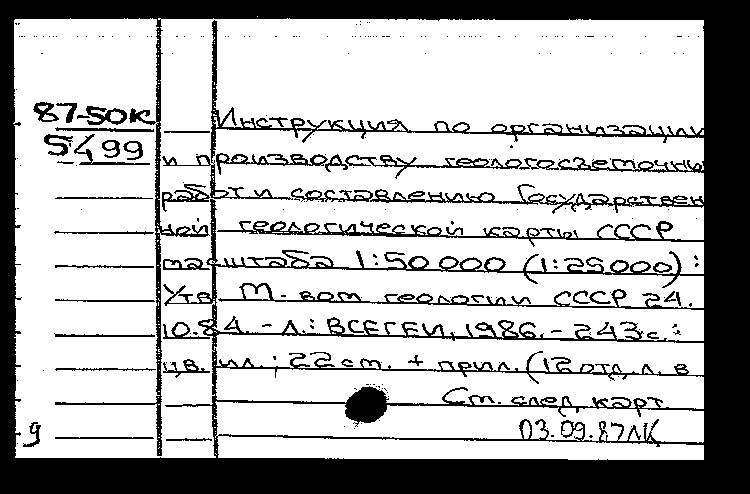 87-50к
5499
Инструкция по организации
и производству геологосъемочны
работ и составлению Государствен
ной геологической карты СССР
масштаба 1:50 000 (1:25000) :
Утв М-вом геологии СССР 24.
10.84. - Л.: ВСЕГЕИ, 1986. - 243 с.:
цв. ил.; 22 см. + прил. (12 отд. л. в
См. след. карт.
9
03.09.87ЛК